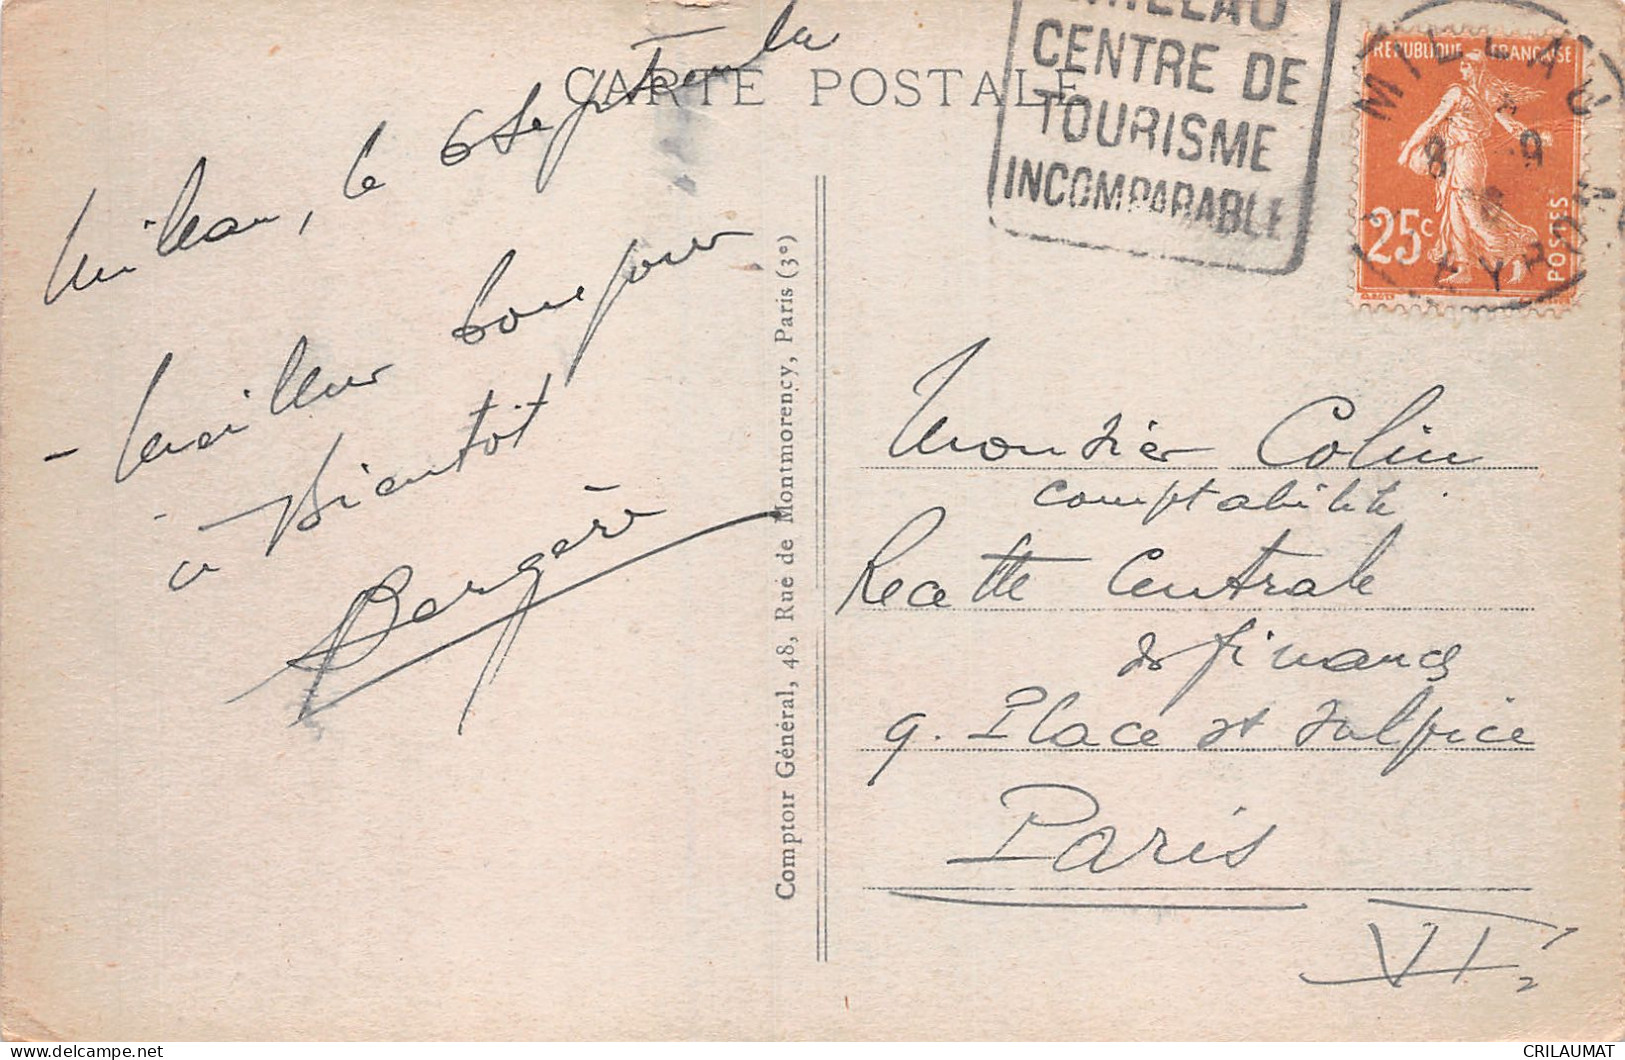 CARTE POSTALE
Millau, le 6 Septembre
- Meilleur bonjour
à bientôt
Bergère
Comptoir Général, 48, Rue de Montmorency, Paris (3e)
MILLAU
CENTRE DE
TOURISME
INCOMPARABLE
REPUBLIQUE FRANÇAISE
25c
POSTES
MILLAU
8 9
AVEYRON
Monsieur Colin
comptabilité
Recette Centrale
des finances
9. Place St Sulpice
Paris
VI
CRILAUMAT